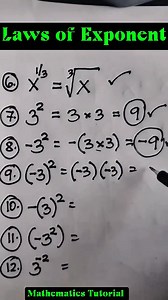 Laws of Exponent
⑥. x^{1/3} = ∛x ✓
⑦. 3² = 3 * 3 = 9 ✓
⑧. -3² = -(3×3) = -9
⑨. (-3)² = (-3)(-3) =
⑩. -(3)² =
⑪. (-3²) =
⑫. 3⁻² =
Mathematics Tutorial